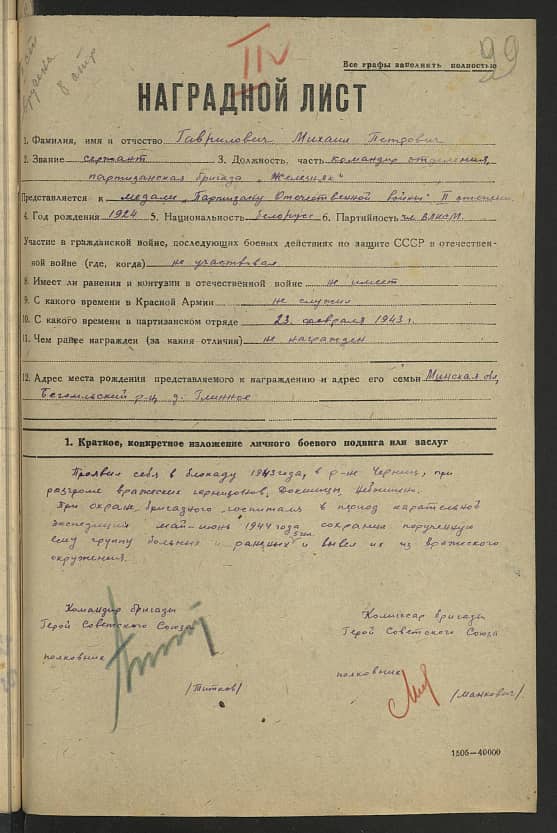 IIV
99
Все графы заполнять полностью
НАГРАДНОЙ ЛИСТ
1. Фамилия, имя и отчество Гаврилович Михаил Петрович
2. Звание сержант 3. Должность, часть командир отделения,
партизанская бригада „Железняк"
Представляется к медали „Партизану Отечественной войны" II степени
4. Год рождения 1924 5. Национальность белорус 6. Партийность чл. ВЛКСМ.
Участие в гражданской войне, последующих боевых действиях по защите СССР в отечествен-
ной войне (где, когда) не участвовал
8. Имеет ли ранения и контузии в отечественной войне не имеет
9. С какого времени в Красной Армии не служил
10. С какого времени в партизанском отряде 23 февраля 1943 г.
11. Чем ранее награжден (за какия отличия) не награжден
12. Адрес места рождения представляемого к награждению и адрес его семьи Минская обл,
Бегомльский р-н, д. Глинное
1. Краткое, конкретное изложение личного боевого подвига или заслуг
Проявил себя в блокаду 1943 года, в р-не Черниц, при
разгроме вражеских гарнизонов, Докшицы,
При охране бригадного госпиталя в период карательной
экспедиции май-июнь 1944 года сохранил порученную
ему группу больных и раненых 5 чел. и вывел их из вражеского
окружения.
Командир бригады
Герой Советского Союза
полковник
/Титков/
Комиссар бригады
Герой Советского Союза
полковник
/Манкович/
1505—40000